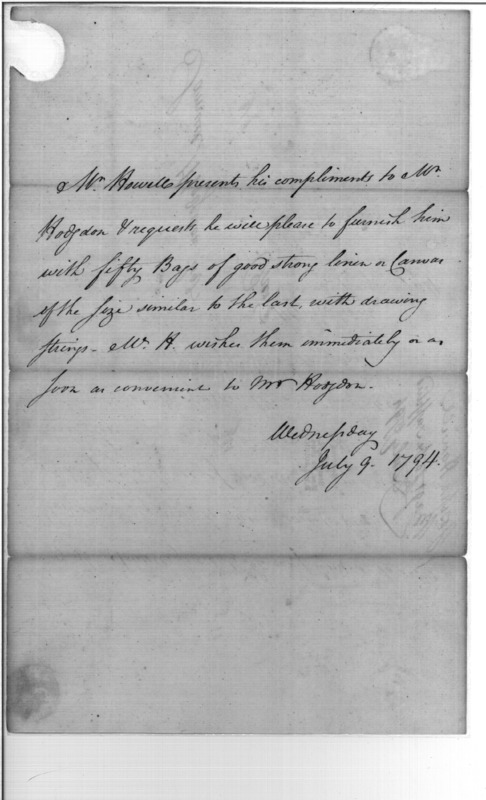 Mr. Howell presents his compliments to Mr.
Hodgdon & requests he will please to furnish him
with fifty Bags of good strong linen or Canvas
of the size similar to the last, with drawing
strings - Mr. H. wishes them immediately or as
soon as convenient to Mr Hodgdon.
Wednesday
July 9. 1794.